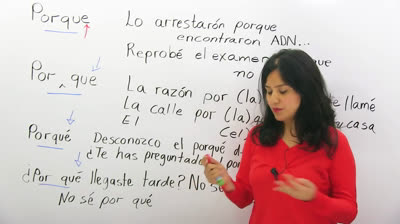 Porque
Lo arrestarón porque
encontraron ADN...
Reprobé el examen que
no
Por que
La razón por (la) te llamé
La calle por (la) su casa
El
Porqué
Desconozco el porqué d
¿Te has preguntado el por
¿Por qué llegaste tarde? No sé
No sé por qué